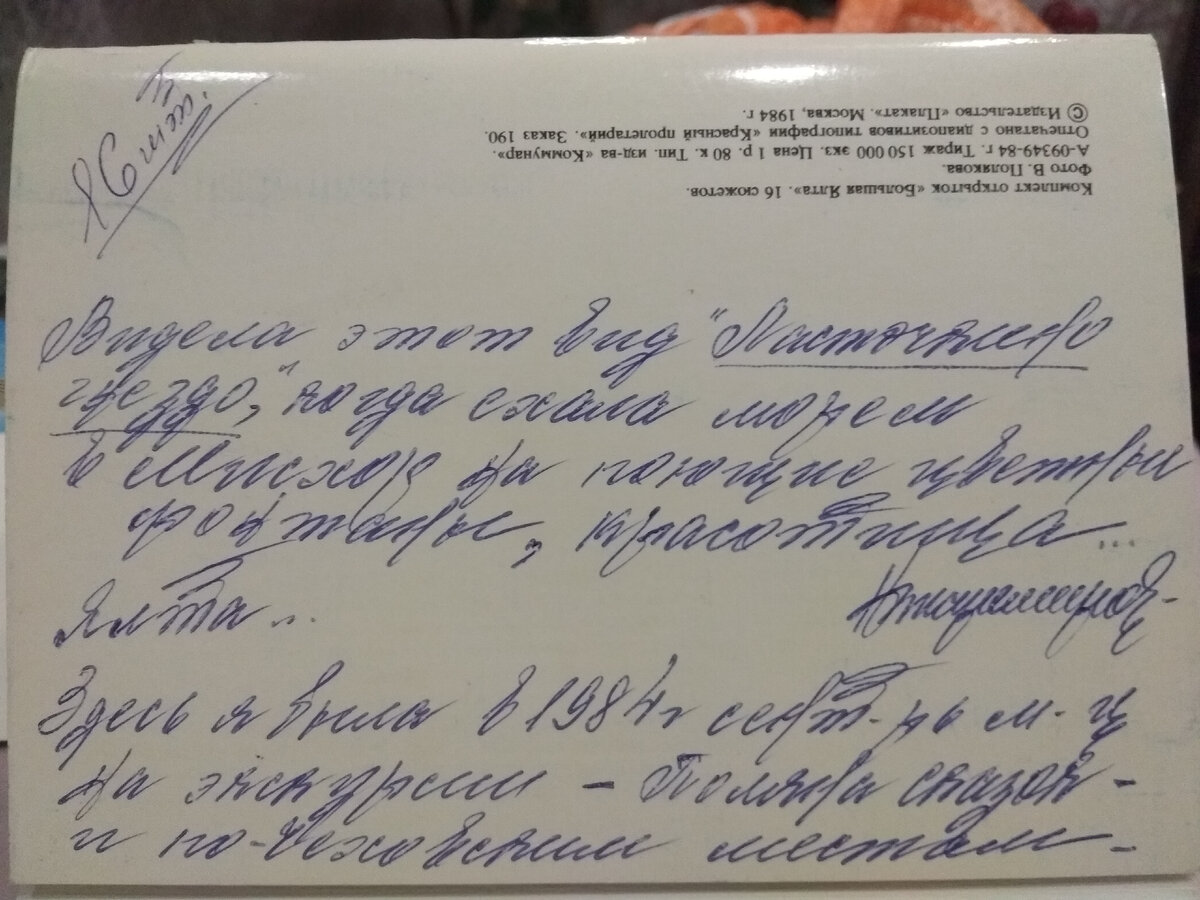 16 шт.
Комплект открыток «Большая Ялта». 16 сюжетов.
Фото В. Полякова.
А-09349-84 г. Тираж 150 000 экз. Цена 1 р. 80 к. Тип. изд-ва «Коммунар».
Отпечатано с диапозитивов типографии «Красный пролетарий». Заказ 190.
© Издательство «Плакат». Москва, 1984 г.
Видела этот вид "Ласточкино
гнездо", когда ехала морем
в Мисхор на поющие цветные
фонтаны, красотища...
Ялта...
Здесь я была в 1984 г сент-рь м-ц
на экскурсии – Поляна сказок –
и по-Чеховским местам –